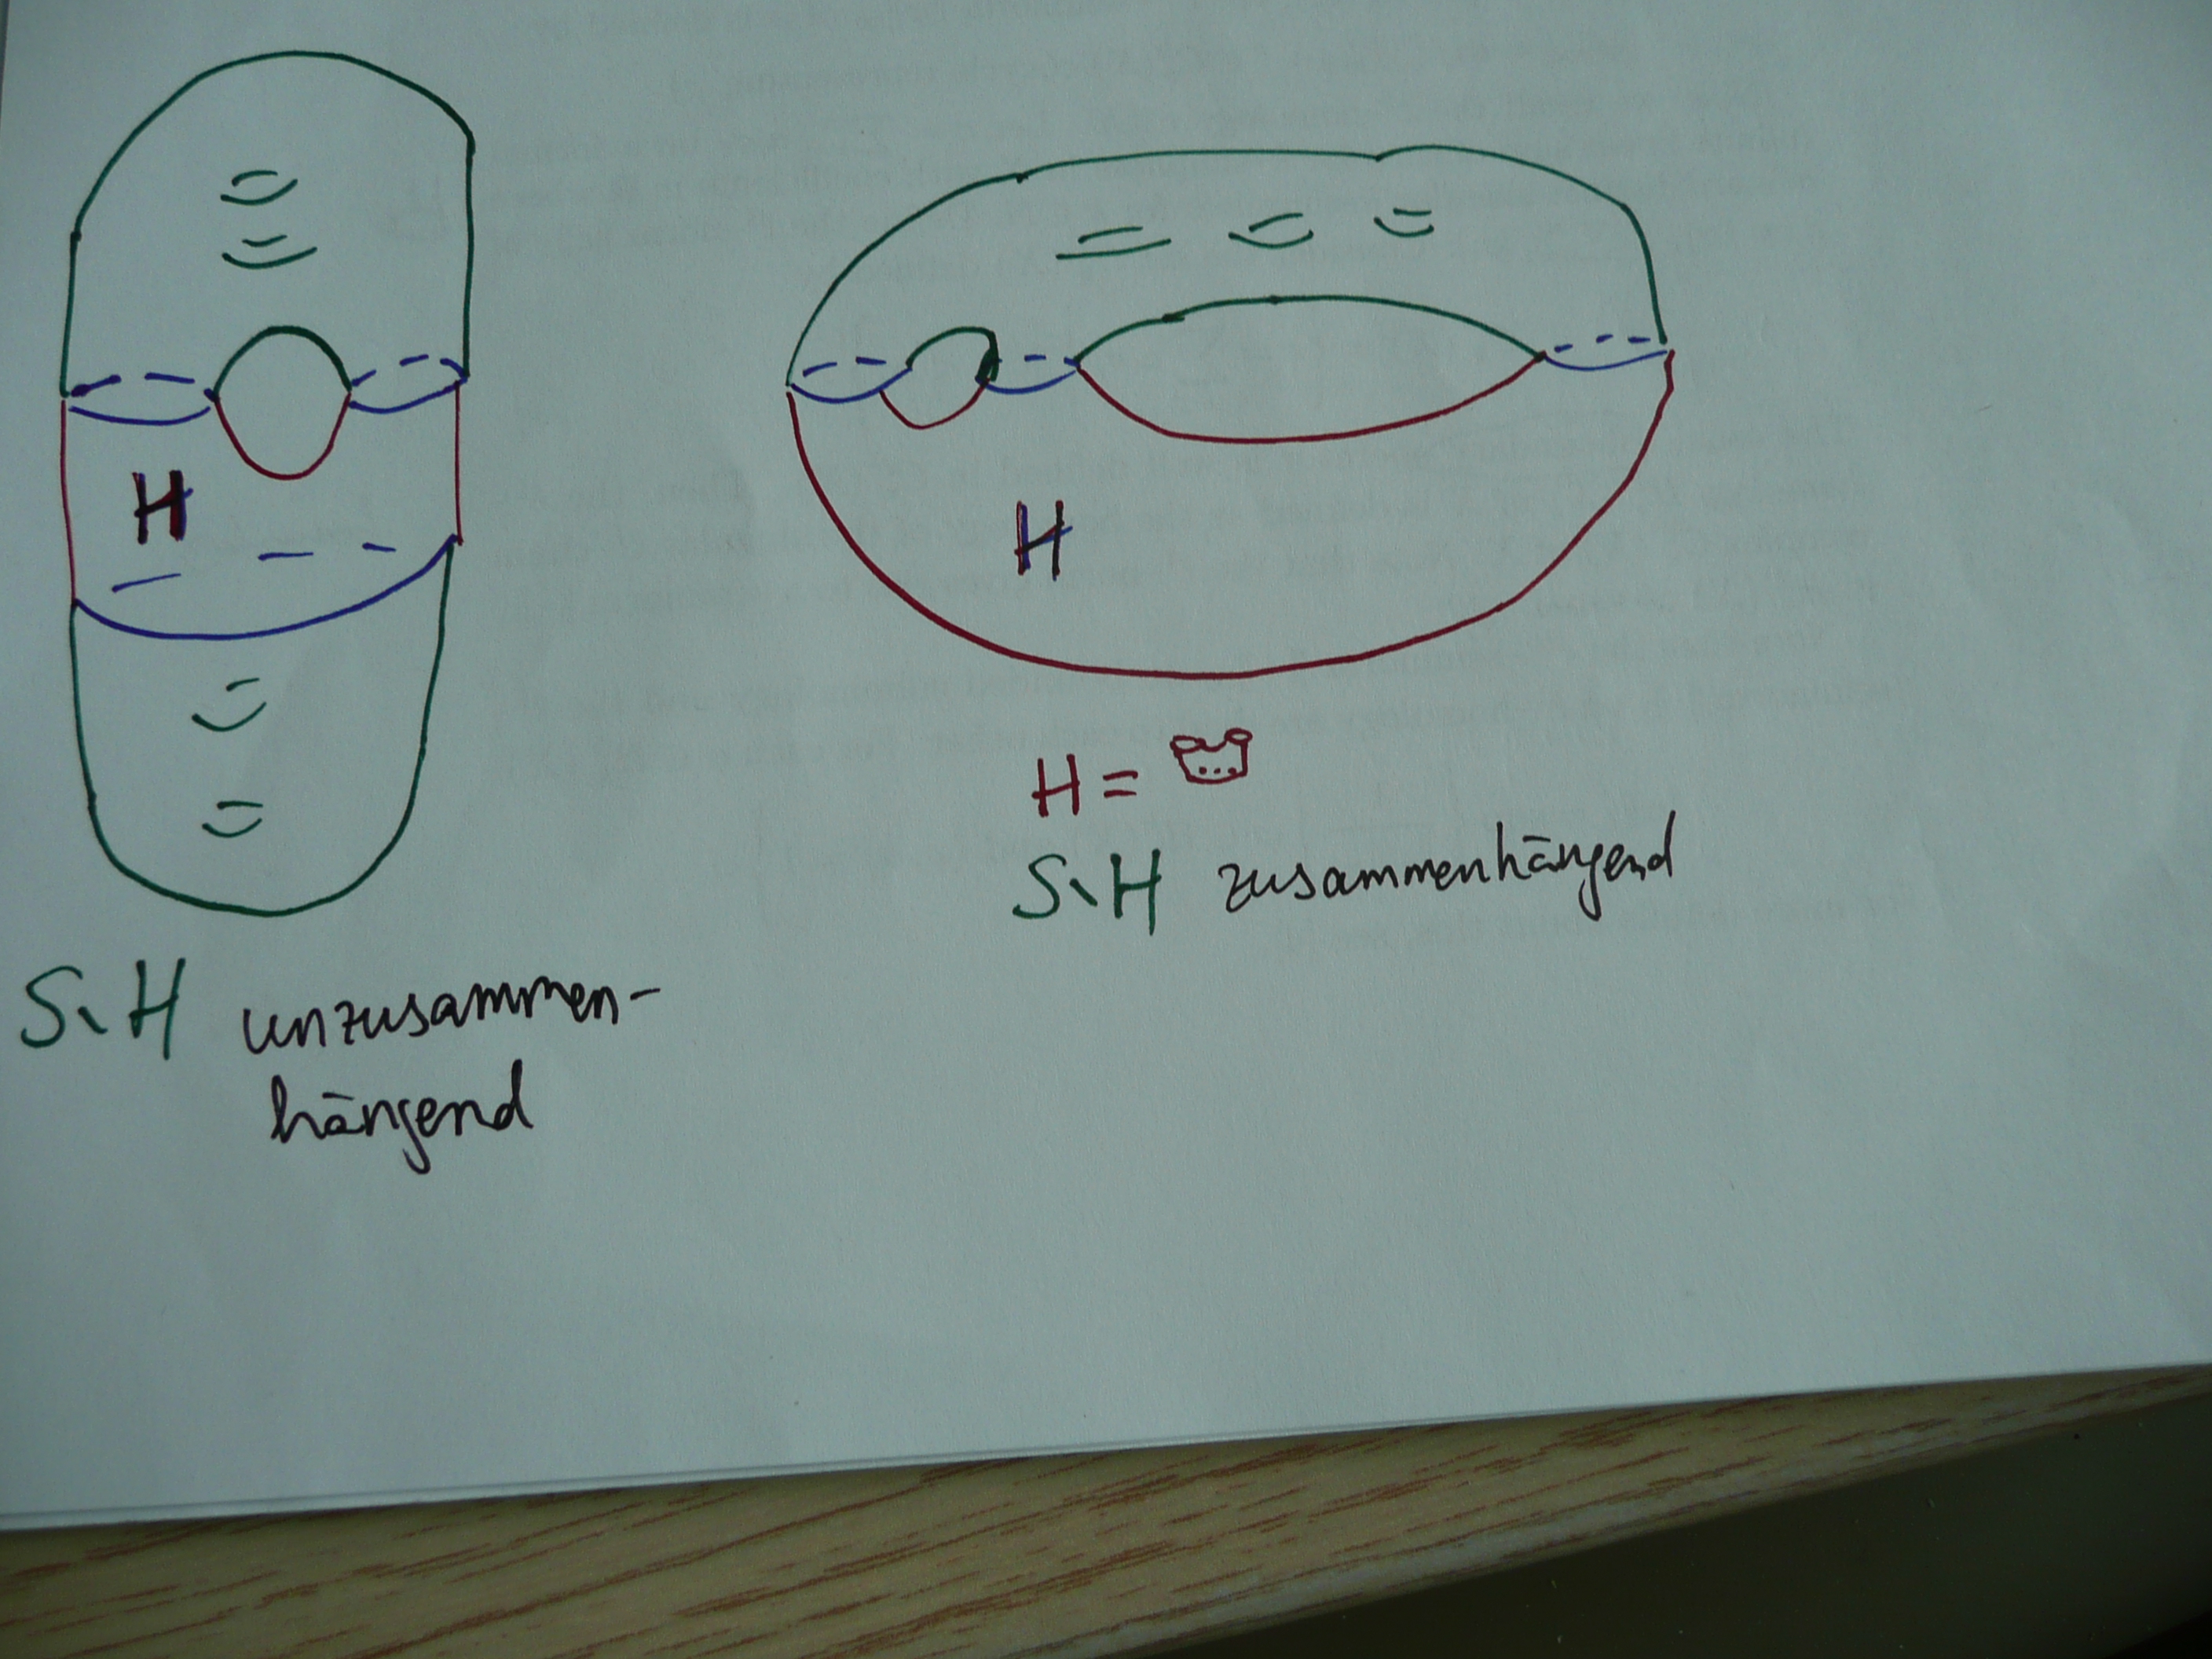 H
H
H =
S∖H zusammenhängend
S∖H unzusammen-
hängend